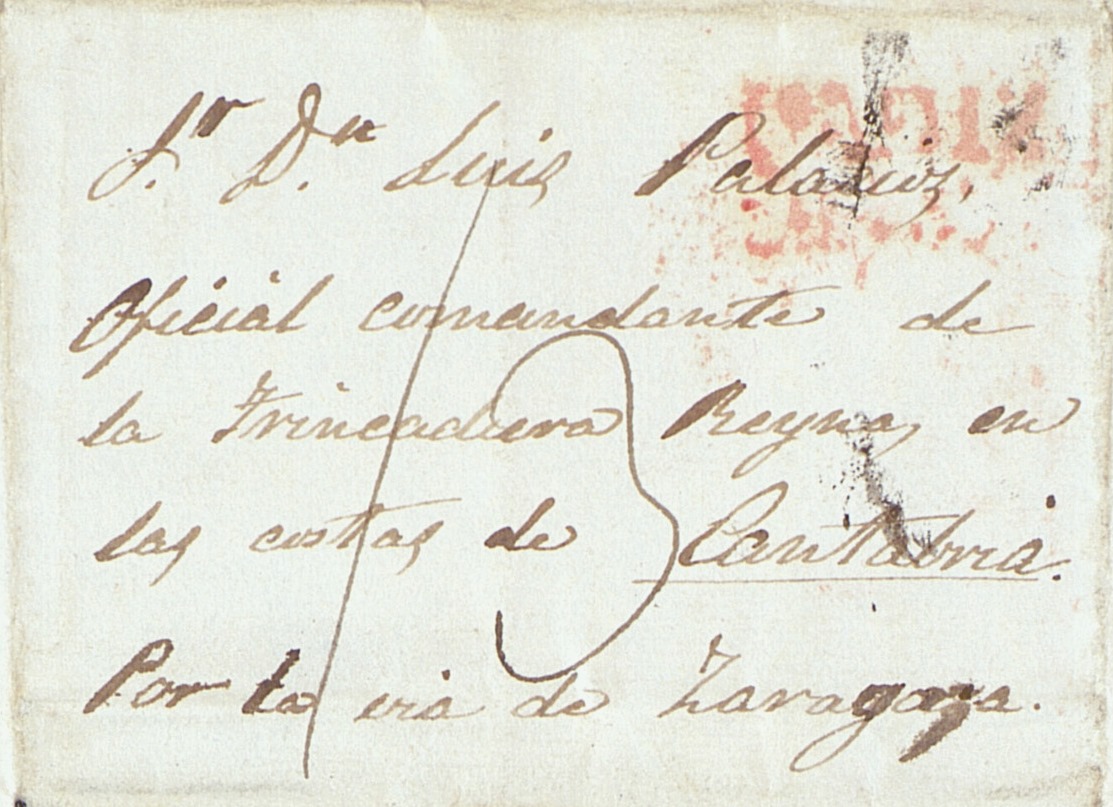 Sr. Dn. Luis Palacios,
Oficial comandante de
la Trincadura Reyna, en
las costas de Cantabria.
Por la via de Zaragoza.
13